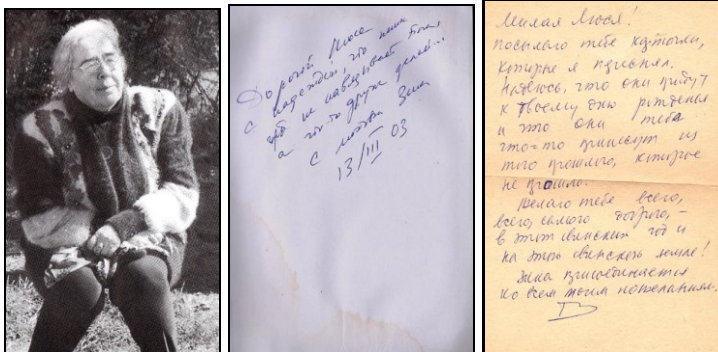 Дорогой Люсе
с надеждой, что наши
не навещывает Бога,
а что-то другое делает...
с любовью Зина
13/III 03
Милая Люся!
посылаю тебе карточки,
которые я
Надеюсь, что они придут
к твоему дню рождения
и что они тебе
что-то принесут из
того прошлого, которое
не прошло.
Желаю тебе всего,
всего, самого доброго, –
в этот свинский год и
на этой свинской земле!
Зина присоединяется
ко всем моим пожеланиям.